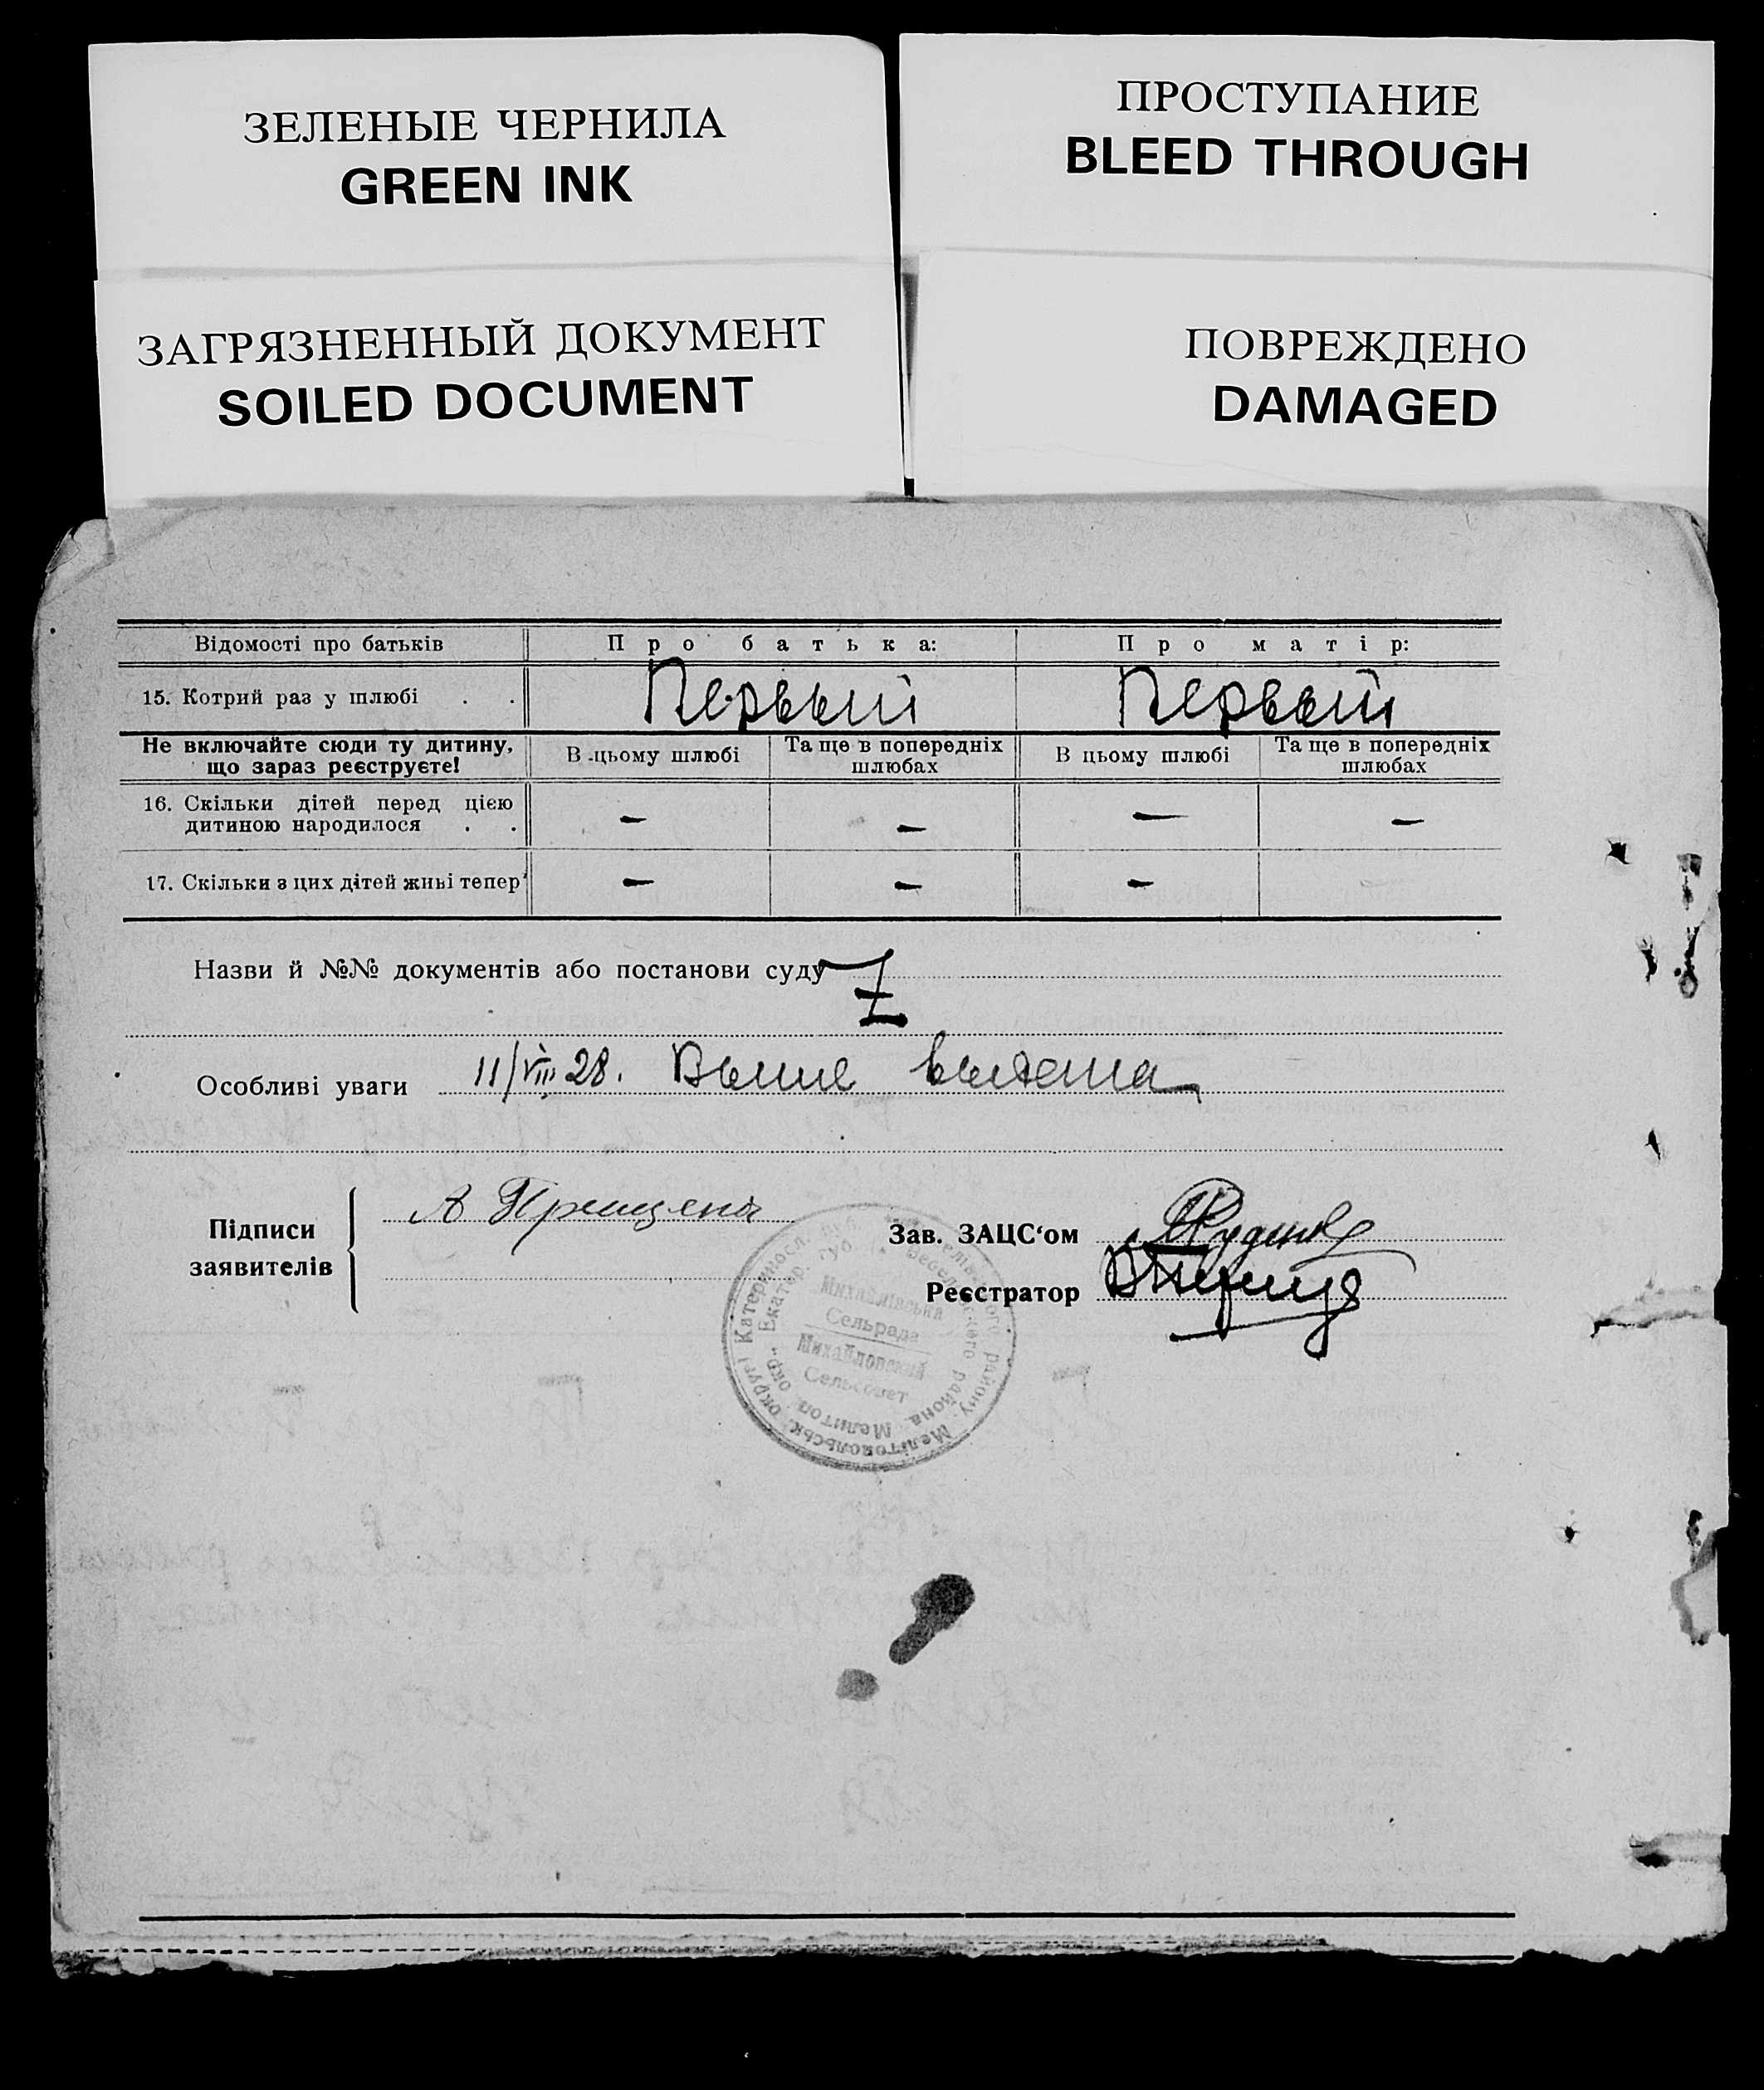 ЗЕЛЕНЫЕ ЧЕРНИЛА
GREEN INK
ПРОСТУПАНИЕ
BLEED THROUGH
ЗАГРЯЗНЕННЫЙ ДОКУМЕНТ
SOILED DOCUMENT
ПОВРЕЖДЕНО
DAMAGED
Відомості про батьків Про батька: Про матір:
15. Котрий раз у шлюбі . . Первый Первый
Не включайте сюди ту дитину, що зараз реєструєте! В цьому шлюбі Та ще в попередніх шлюбах В цьому шлюбі Та ще в попередніх шлюбах
16. Скільки дітей перед цією
дитиною народилося . . — — — —
17. Скільки з цих дітей живі тепер — — —
Назви й №№ документів або постанови суду
Особливі уваги 11/VIII 28.
Підписи
заявителів
А
Зав. ЗАЦС'ом
Реєстратор
Михайлівська
Сельрада
Михайловский
Сельсовет